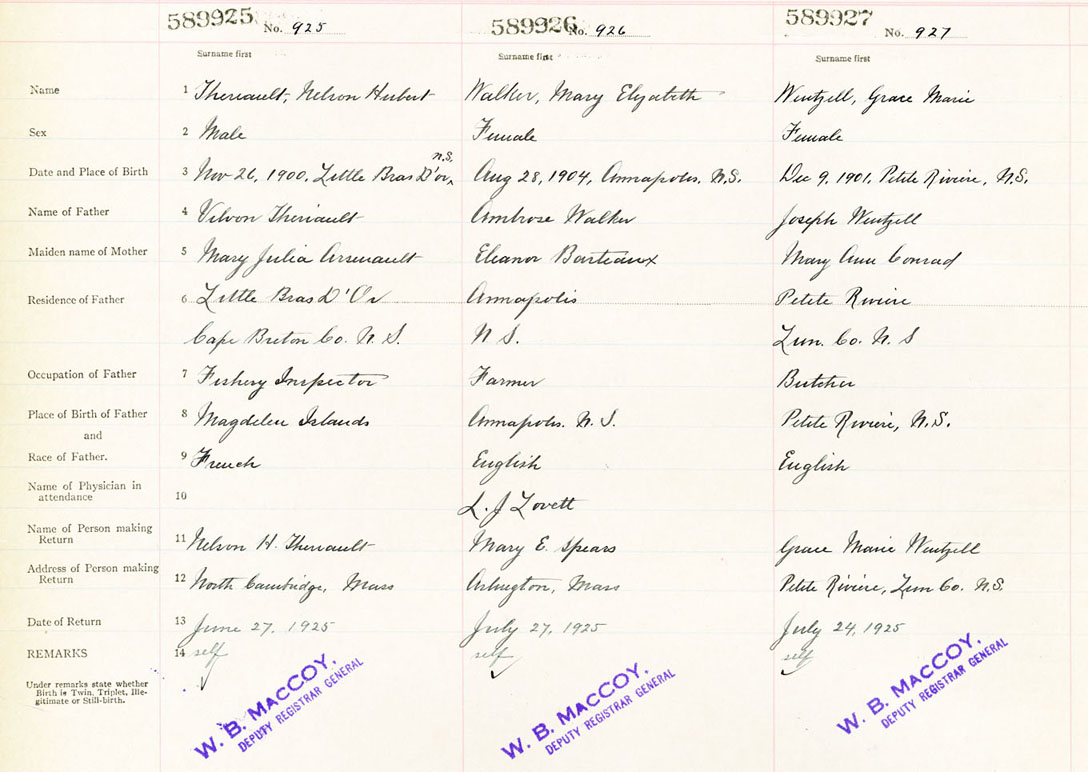 589925 No. 925 589926 No. 926 589927 No. 927
Surname first Surname first Surname first
Name 1 Theriault, Nelson Hubert Walker, Mary Elizabeth Wentzell, Grace Marie
Sex 2 Male Female Female
N.S.
Date and Place of Birth 3 Nov 26, 1900, Little Bras D'or, Aug 28, 1904, Annapolis. N.S. Dec 9, 1901, Petite Riviere, N.S.
Name of Father 4 Theriault Ambrose Walker Joseph Wentzell
Maiden name of Mother 5 Mary Julia Arsenault Eleanor Barteaux Mary Ann Conrad
Residence of Father 6 Little Bras D'Or Annapolis Petite Riviere
Cape Breton Co. N. S. N S. Lun. Co. N. S
Occupation of Father 7 Fishery Inspector Farmer Butcher
Place of Birth of Father 8 Magdelen Islands Annapolis. N. S. Petite Riviere, N.S.
and
Race of Father. 9 French English English
Name of Physician in
attendance 10 L. J Lovett
Name of Person making
Return 11 Nelson H. Theriault Mary E. Spears Grace Marie Wentzell
Address of Person making
Return 12 North Cambridge, Mass Arlington, Mass Petite Riviere, Lun Co. N.S.
Date of Return 13 June 27, 1925 July 27, 1925 July 24, 1925
REMARKS 14 self self self
Under remarks state whether
Birth is Twin, Triplet, Ille-
gitimate or Still-birth.
W. B. MACCOY,
DEPUTY REGISTRAR GENERAL
W. B. MACCOY,
DEPUTY REGISTRAR GENERAL
W. B. MACCOY,
DEPUTY REGISTRAR GENERAL